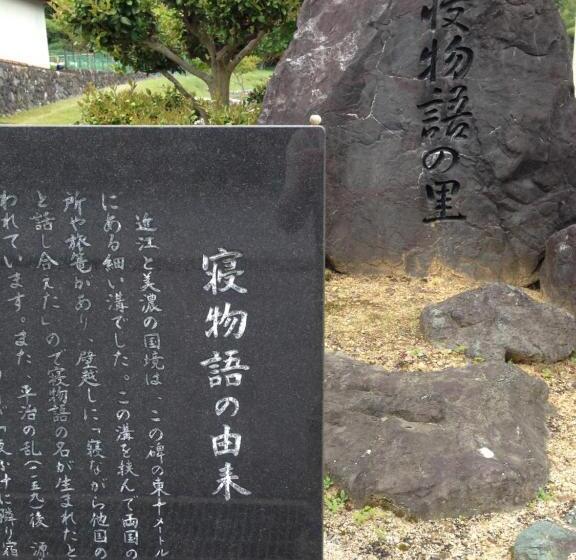 寝物語の里
寝物語の由来
近江と美濃の国境は、この碑の東十メートル
にある細い溝でした。この溝を挟んで両国の
所や旅篭があり、壁越しに「寝ながら他国の
と話し合えた」ので寝物語の名が生まれたと
われています。また、平治の乱(一一五九)後 源
隣り宿